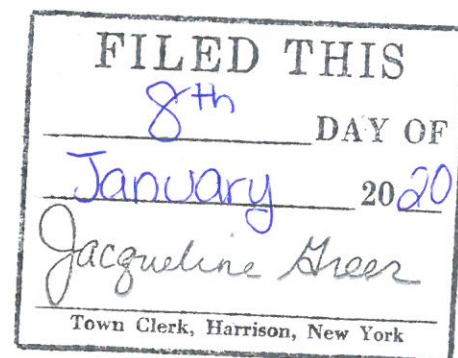 FILED THIS
8th
DAY OF
January 2020
Jacqueline Greer
Town Clerk, Harrison, New York